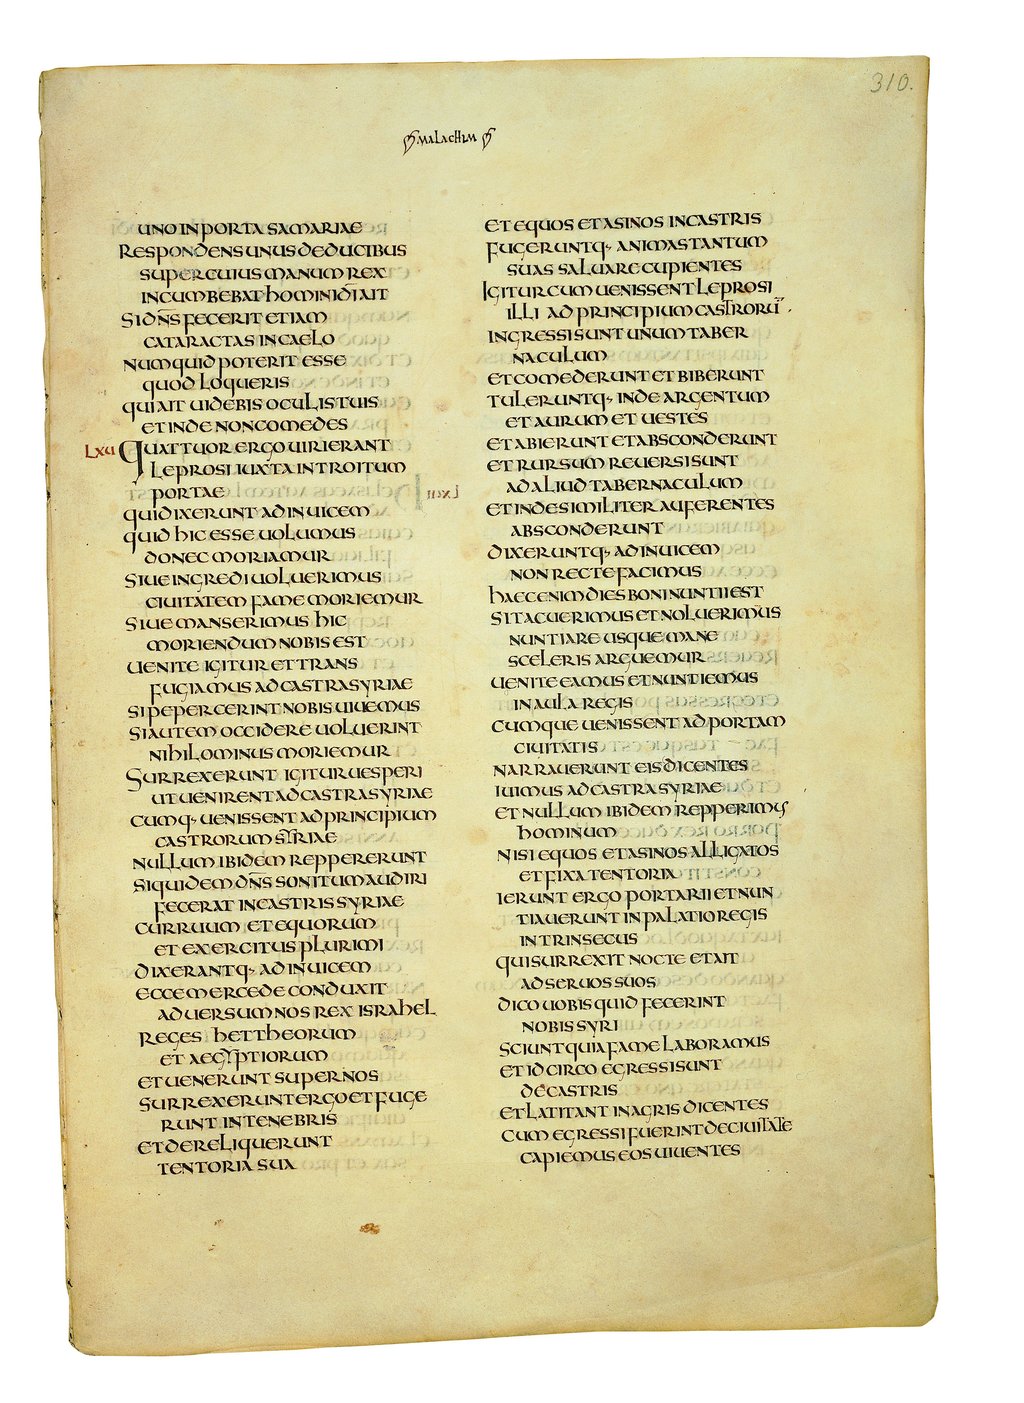 310.
MALACHIM
UNO IN PORTA SAMARIAE
RESPONDENS UNUS DE DUCIBUS
SUPER CUIUS MANUM REX
INCUMBEBAT HOMINI DI AIT
SI DNS FECERIT ETIAM
CATARACTAS IN CAELO
NUMQUID POTERIT ESSE
QUOD LOQUERIS
QUI AIT UIDEBIS OCULIS TUIS
ET INDE NON COMEDES
LXII QUATTUOR ERGO UIRI ERANT
LEPROSI IUXTA INTROITUM
PORTAE
QUI DIXERUNT AD INUICEM
QUID HIC ESSE UOLUMUS
DONEC MORIAMUR
SIUE INGREDI UOLUERIMUS
CIUITATEM FAME MORIEMUR
SIUE MANSERIMUS HIC
MORIENDUM NOBIS EST
UENITE IGITUR ET TRANS
FUGIAMUS AD CASTRA SYRIAE
SI PEPERCERINT NOBIS UIUEMUS
SI AUTEM OCCIDERE UOLUERINT
NIHILOMINUS MORIEMUR
SURREXERUNT IGITUR UESPERI
UT UENIRENT AD CASTRA SYRIAE
CUMQ· UENISSENT AD PRINCIPIUM
CASTRORUM SYRIAE
NULLUM IBIDEM REPPERERUNT
SIQUIDEM DNS SONITUM AUDIRI
FECERAT IN CASTRIS SYRIAE
CURRUUM ET EQUORUM
ET EXERCITUS PLURIMI
DIXERANTQ· AD INUICEM
ECCE MERCEDE CONDUXIT
ADUERSUM NOS REX ISRAHEL
REGES HETTHEORUM
ET AEGYPTIORUM
ET UENERUNT SUPER NOS
SURREXERUNT ERGO ET FUGE
RUNT IN TENEBRIS
ET DERELIQUERUNT
TENTORIA SUA
ET EQUOS ET ASINOS IN CASTRIS
FUGERUNTQ· ANIMAS TANTUM
SUAS SALUARE CUPIENTES
IGITUR CUM UENISSENT LEPROSI
ILLI AD PRINCIPIUM CASTRORU
INGRESSI SUNT UNUM TABER
NACULUM
ET COMEDERUNT ET BIBERUNT
TULERUNTQ· INDE ARGENTUM
ET AURUM ET UESTES
ET ABIERUNT ET ABSCONDERUNT
ET RURSUM REUERSI SUNT
AD ALIUD TABERNACULUM
ET INDE SIMILITER AUFERENTES
ABSCONDERUNT
DIXERUNTQ· AD INUICEM
NON RECTE FACIMUS
HAEC ENIM DIES BONI NUNTII EST
SI TACUERIMUS ET NOLUERIMUS
NUNTIARE USQUE MANE
SCELERIS ARGUEMUR
UENITE EAMUS ET NUNTIEMUS
IN AULA REGIS
CUMQUE UENISSENT AD PORTAM
CIUITATIS
NARRAUERUNT EIS DICENTES
IUIMUS AD CASTRA SYRIAE
ET NULLUM IBIDEM REPPERIMUS
HOMINUM
NISI EQUOS ET ASINOS ALLIGATOS
ET FIXA TENTORIA
IERUNT ERGO PORTARII ET NUN
TIAUERUNT IN PALATIO REGIS
INTRINSECUS
QUI SURREXIT NOCTE ET AIT
AD SERUOS SUOS
DICO UOBIS QUID FECERINT
NOBIS SYRI
SCIUNT QUIA FAME LABORAMUS
ET IDCIRCO EGRESSI SUNT
DE CASTRIS
ET LATITANT IN AGRIS DICENTES
CUM EGRESSI FUERINT DE CIUITATE
CAPIEMUS EOS UIUENTES